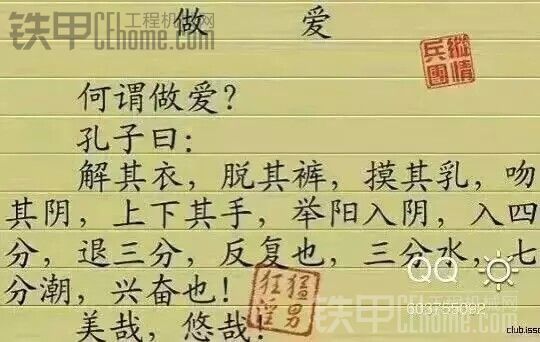 铁甲 工程机械网
CEhome.com
做 爱
纵情
兵團
何谓做爱？
孔子曰：
解其衣，脱其裤，摸其乳，吻
其阴，上下其手，举阳入阴，入四
分，退三分，反复也，三分水，七
分潮，兴奋也！
美哉，悠哉！
猛男
狂淫
QQ
603755092
铁甲 工程机械网
CEhome.com
club.isso